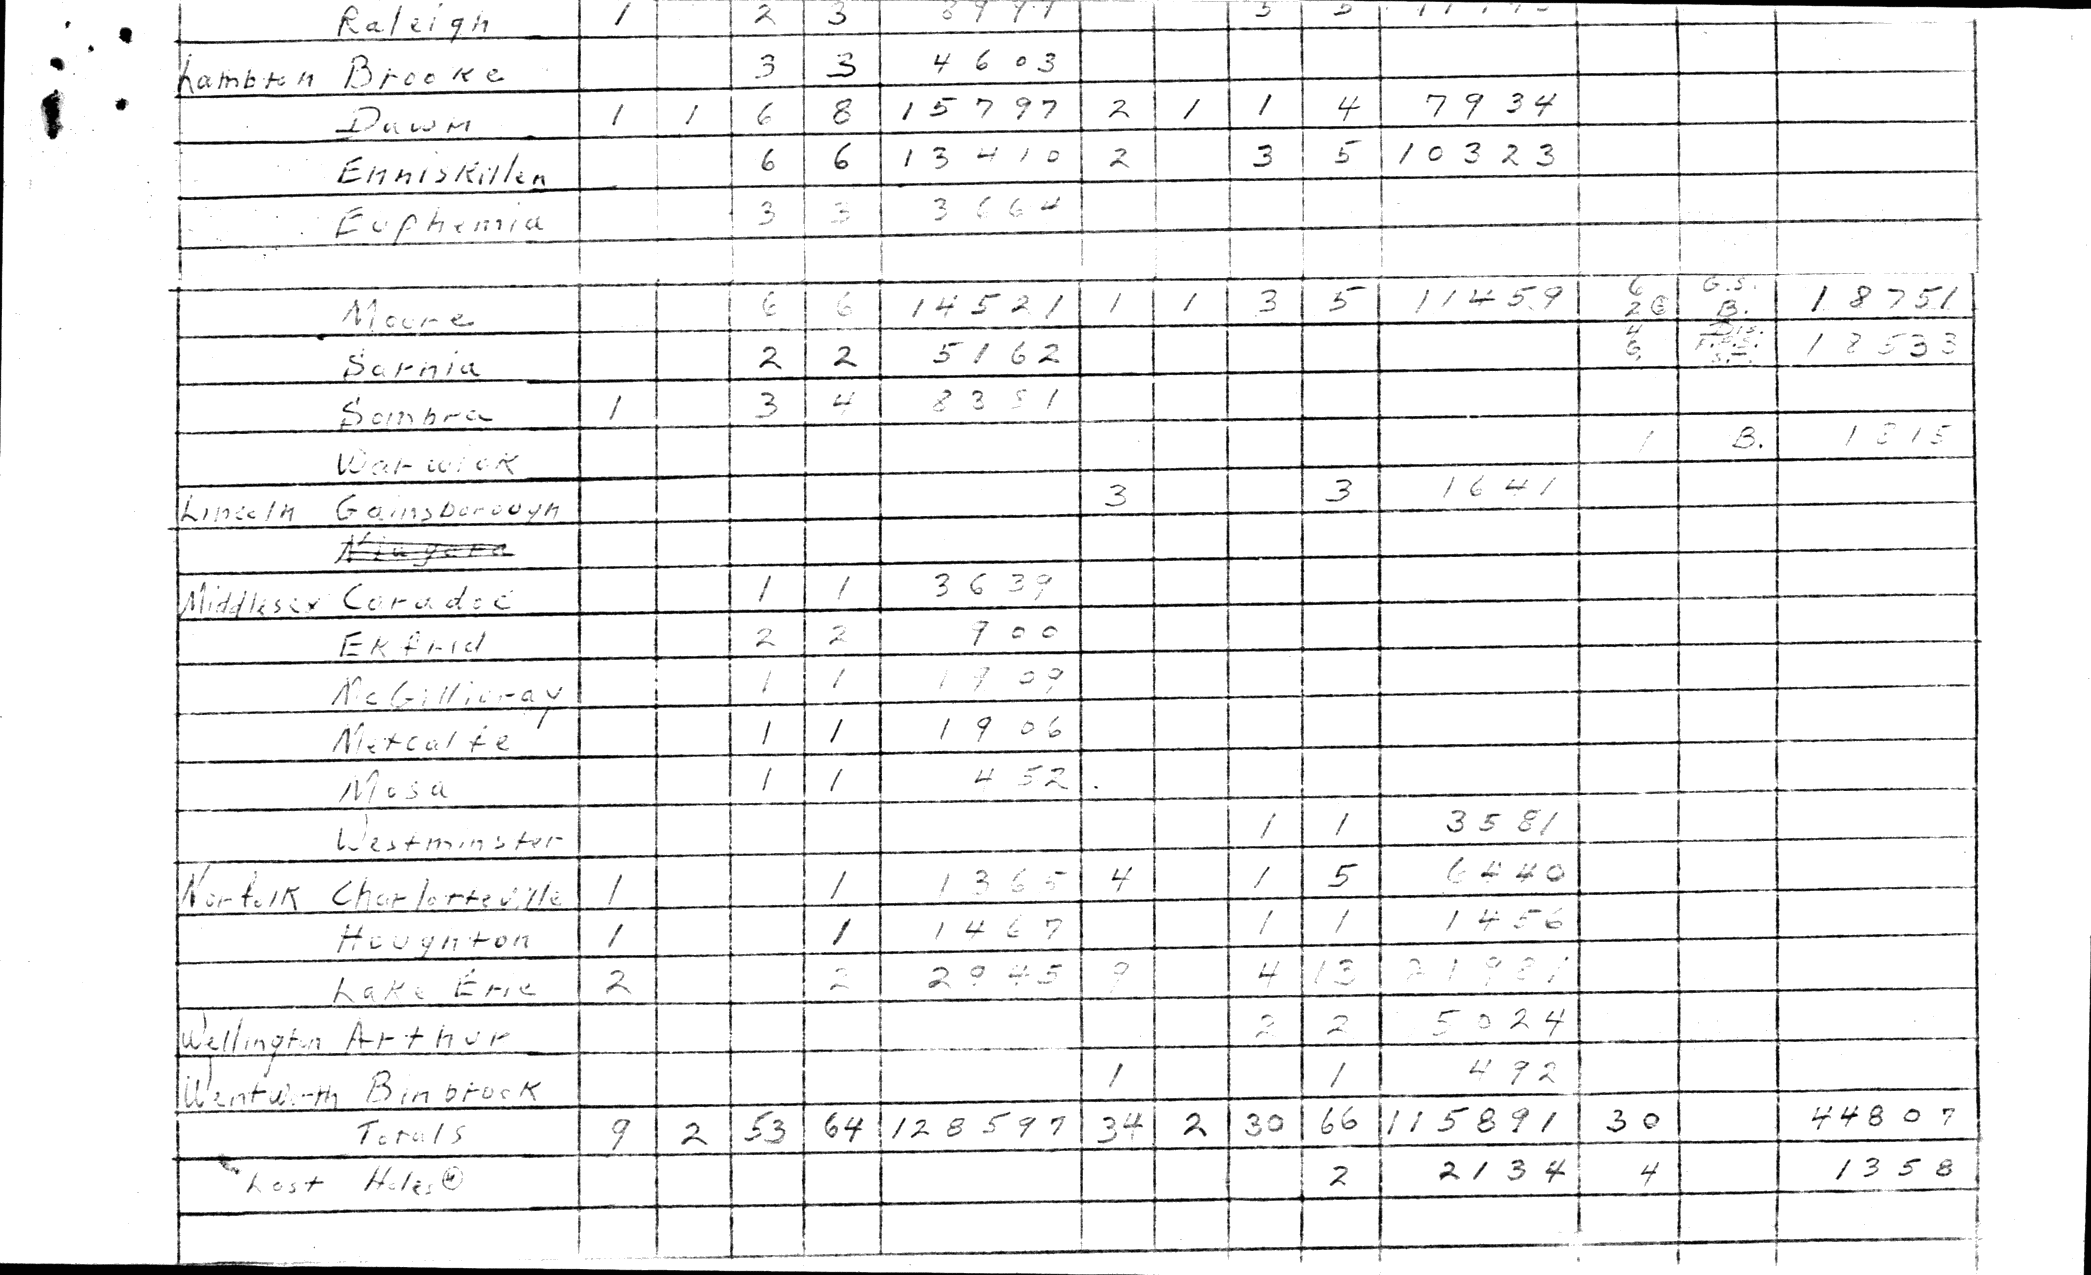 Raleigh 1 2 3 5 5
Lambton Brooke 3 3 4603
Dawn 1 1 6 8 15797 2 1 1 4 7934
Enniskillen 6 6 13410 2 3 5 10323
Euphemia 3 3 3664
Moore 6 6 14521 1 1 3 5 11459 6 G.S. 18751
2 B.
4 Dis.
Sarnia 2 2 5162 6 18533
Sombra 1 3 4 8351
Warwick 1 B. 1815
Lincoln Gainsborough 3 3 1641
Niagara
Middlesex Caradoc 1 1 3639
Ekfrid 2 2 900
McGillivray 1 1 1909
Metcalfe 1 1 1906
Mosa 1 1 452
Westminster 1 1 3581
Norfolk Charlotteville 1 1 1365 4 1 5 6440
Houghton 1 1 1467 1 1 1456
Lake Erie 2 2 2945 9 4 13 21981
Wellington Arthur 2 2 5024
Wentworth Binbrook 1 1 492
Totals 9 2 53 64 128597 34 2 30 66 115891 30 44807
Lost Holes 2 2134 4 1358